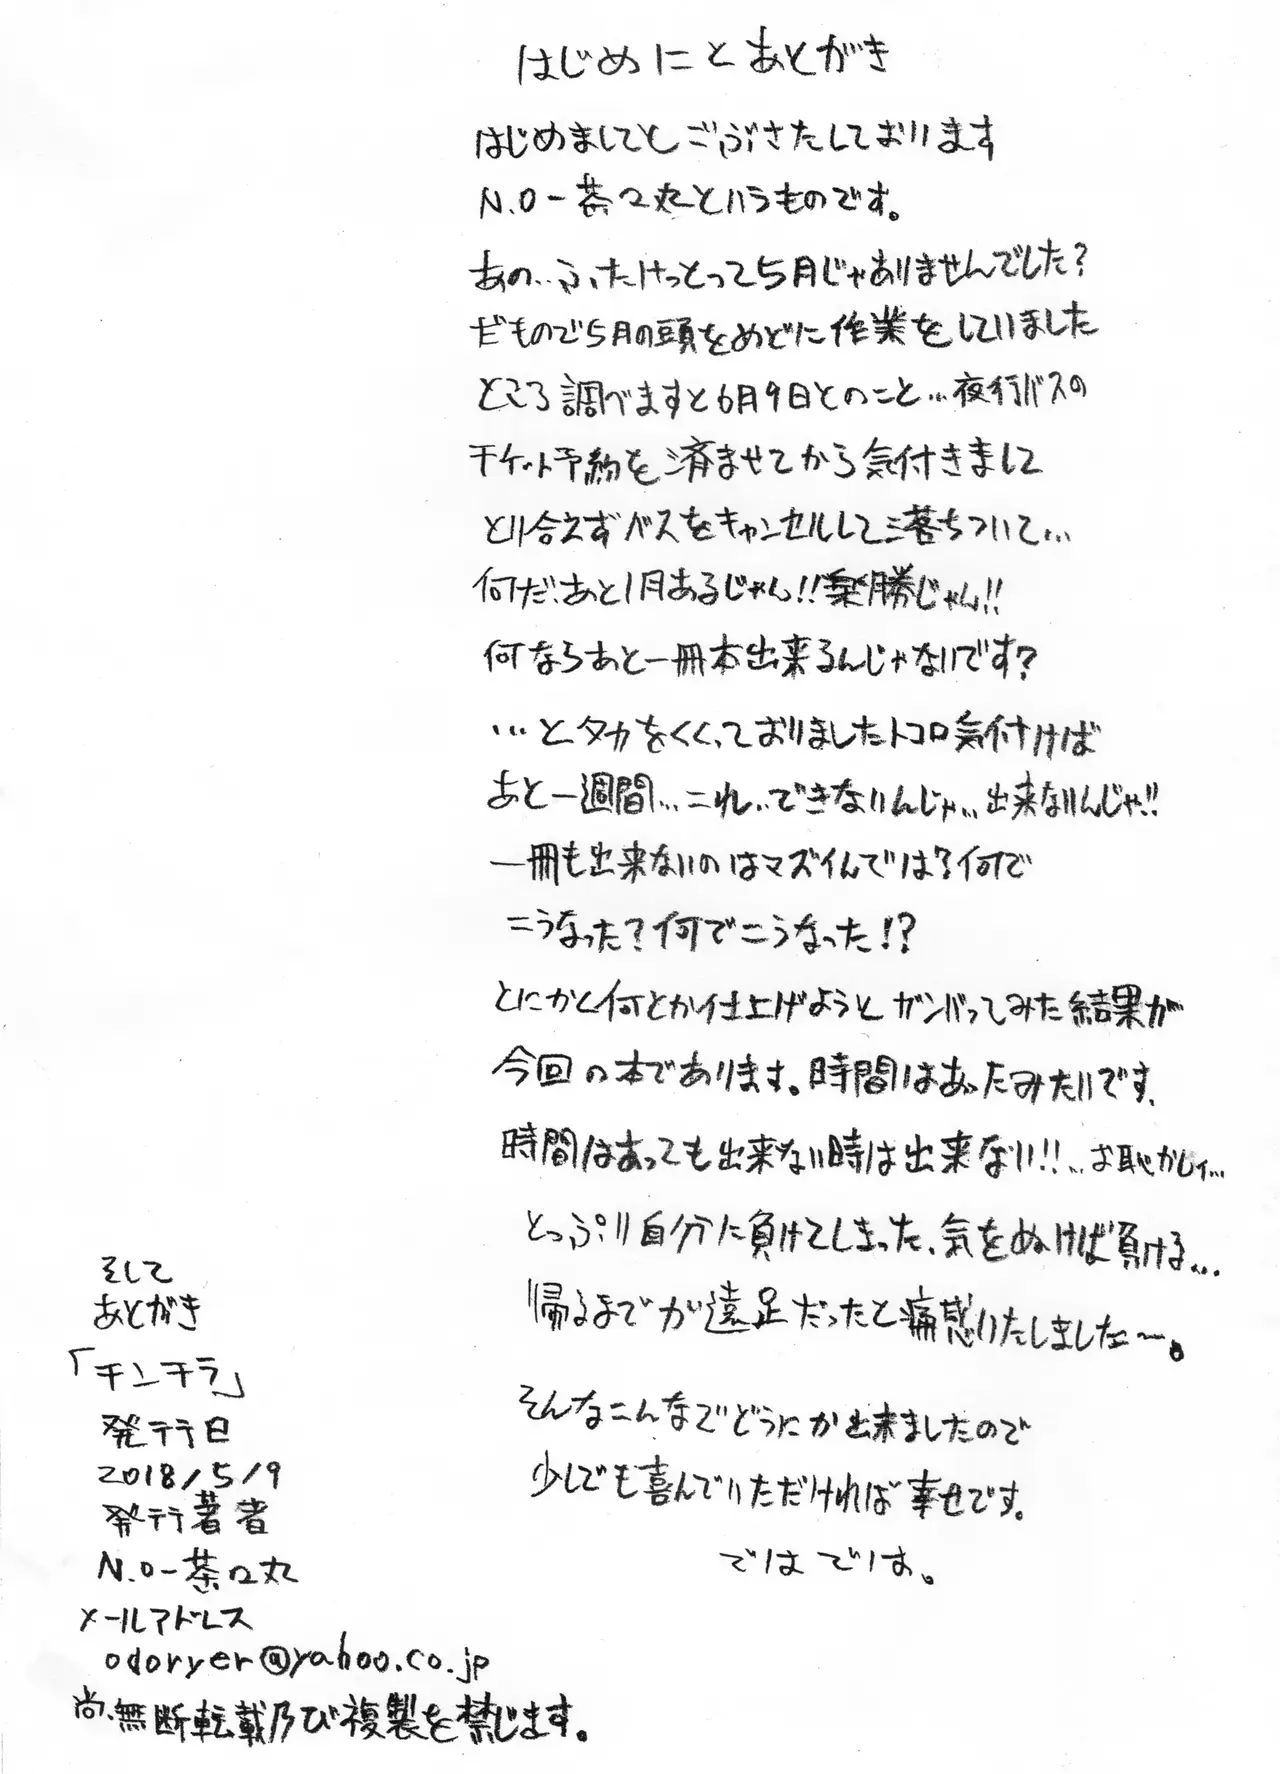 はじめにとあとがき
はじめましてとごぶさたしております
N.O-茶々丸というものです。
あの…ふたけっとって5月じゃありませんでした?
だもので5月の頭をめどに作業をしていました
ところ調べますと6月9日とのこと…夜行バスの
チケット予約を済ませてから気付きまして
とり合えずバスをキャンセルして落ちついて…
何だ、あと1月あるじゃん!!楽勝じゃん!!
何ならあと一冊本出来るんじゃないです?
…とタカをくくっておりましたトコロ気付けば
あと一週間…これ…できないんじゃ…出来ないんじゃ!!
一冊も出来ないのはマズイんでは?何で
こうなった?何でこうなった!?
とにかく何とか仕上げようとガンバってみた結果が
今回の本であります。時間はあったみたいです、
時間はあっても出来ない時は出来ない!!…お恥かしい…
とっぷり自分に負けてしまった、気をぬけば負ける…
帰るまでが遠足だったと痛感いたしました〜。
そんなこんなでどうにか出来ましたので
少しでも喜んでいただければ幸せです。
ではでは。
そして
あとがき
「チンチラ」
発テテ日
2018/5/9
発テテ著者
N.O-茶々丸
メールアドレス
odoryer@yahoo.co.jp
尚、無断転載乃び複製を禁じます。